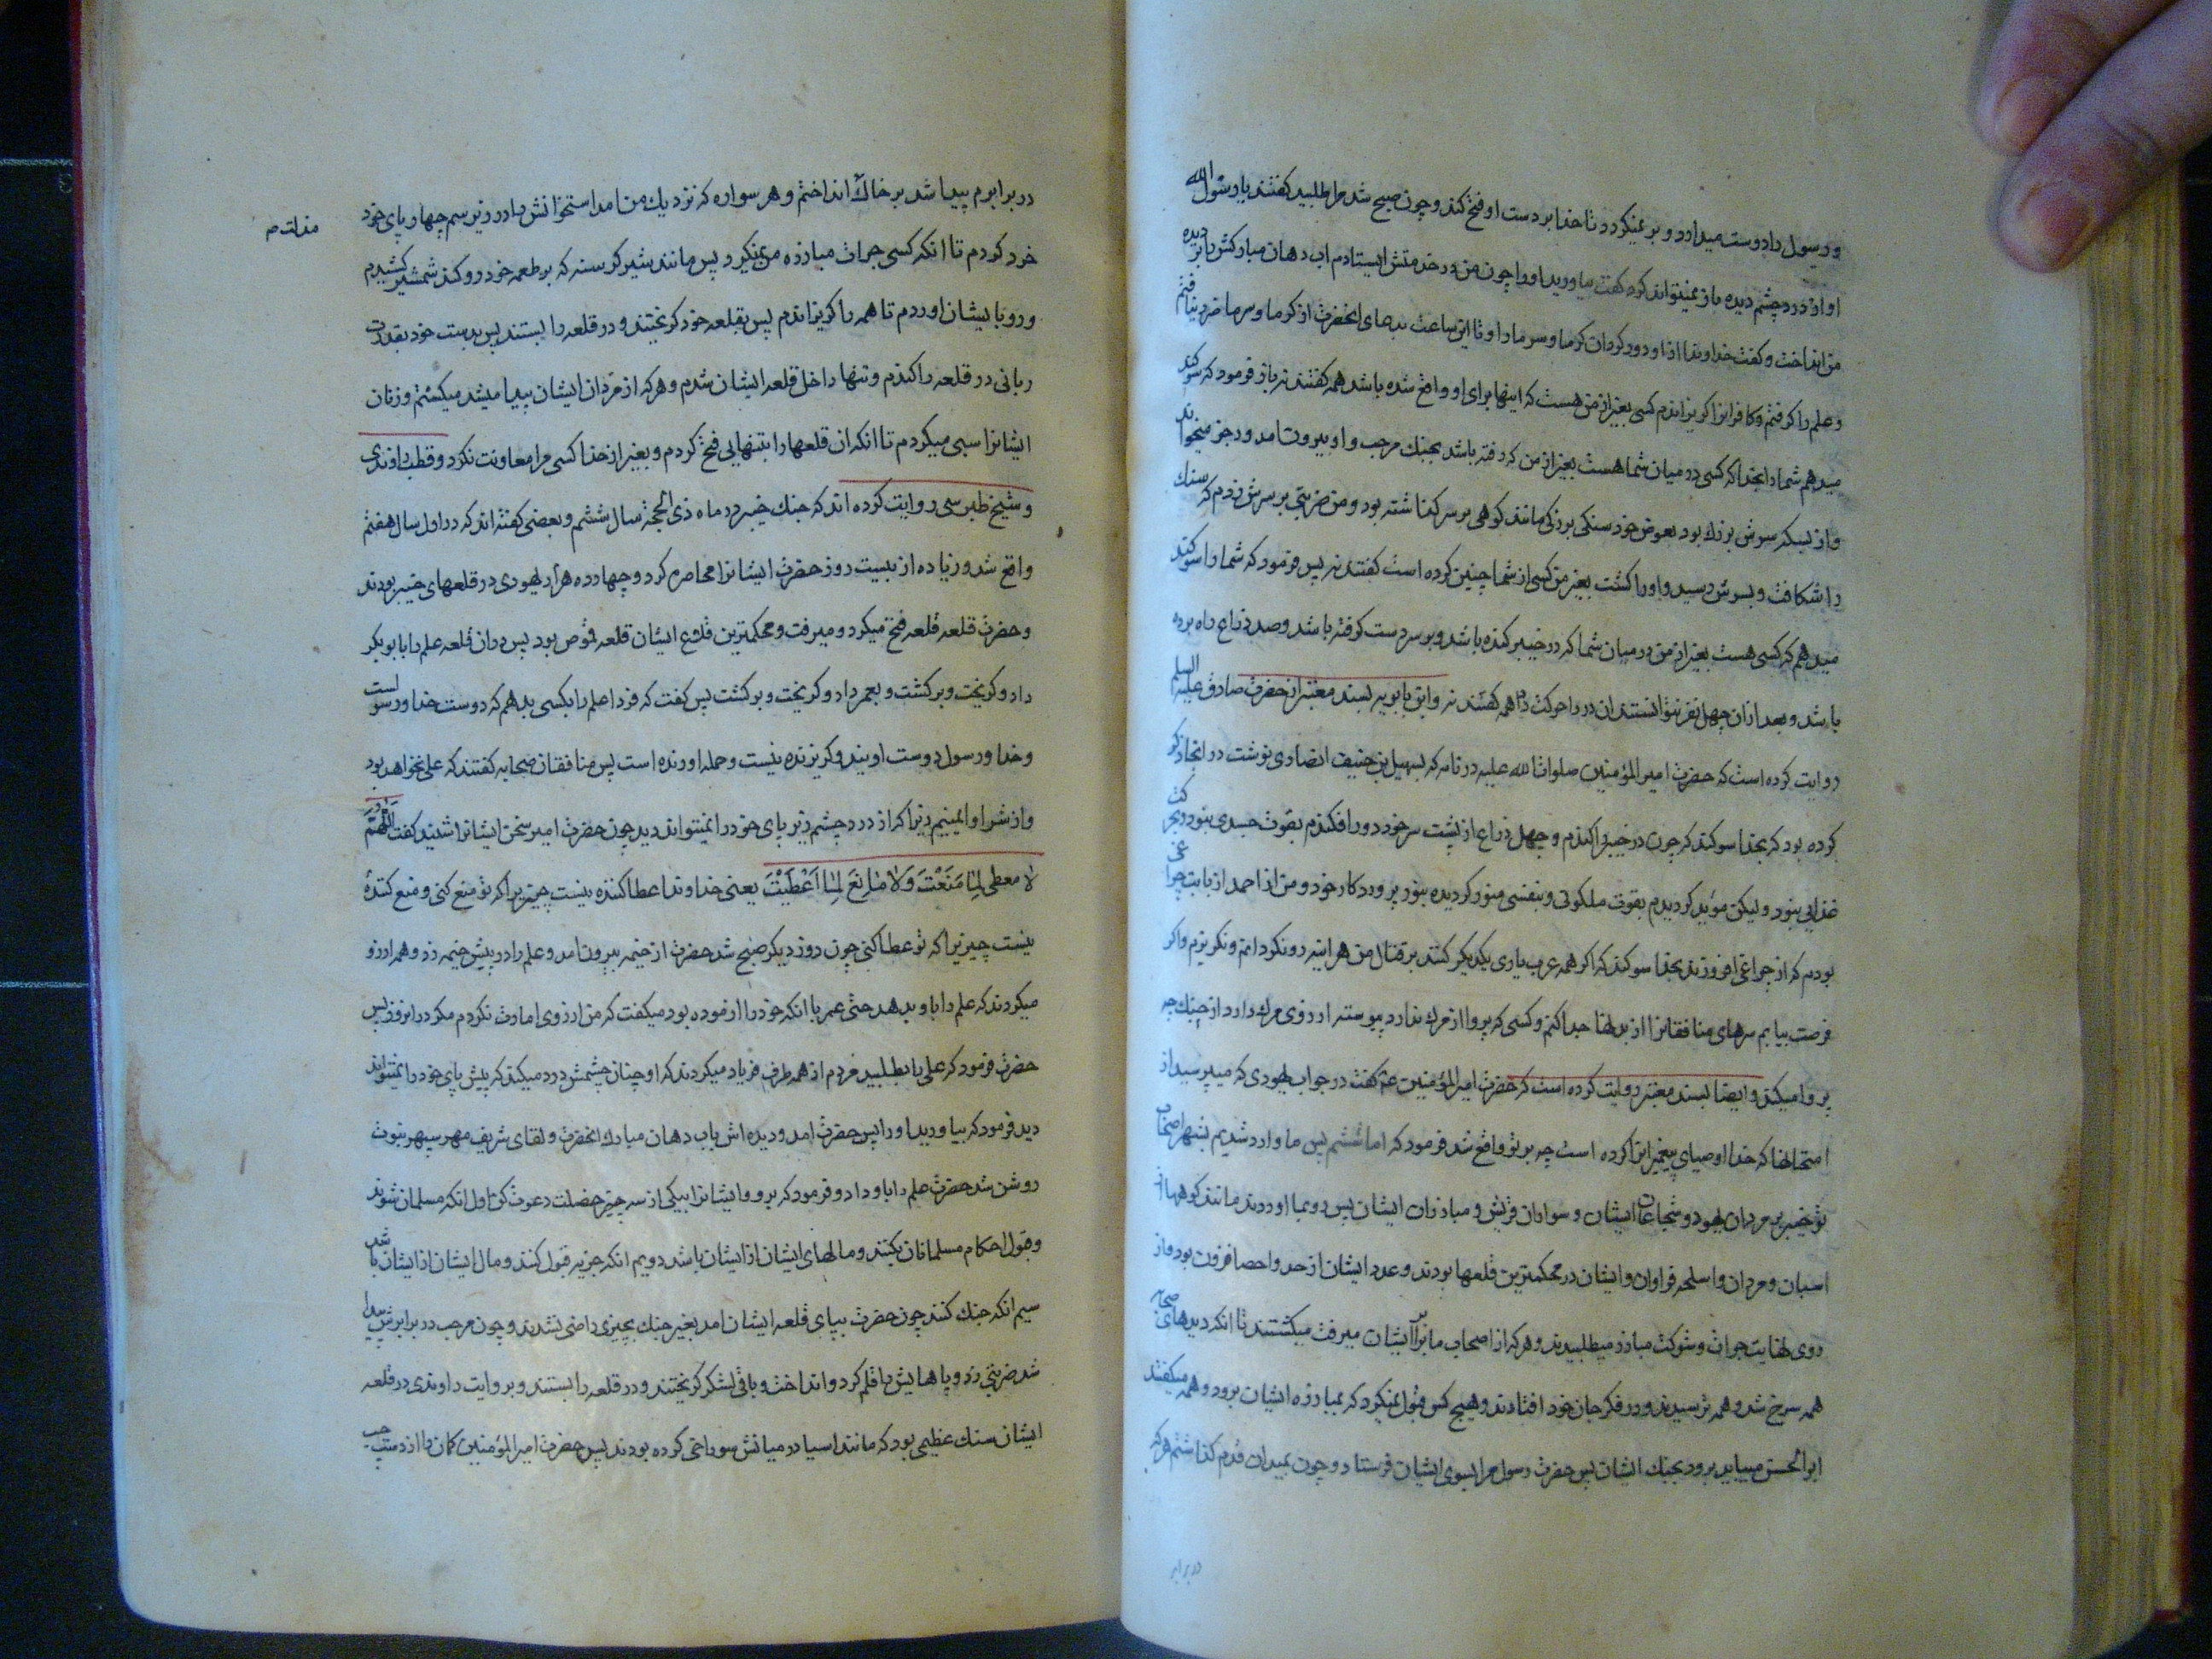 و رسول را دوست میدارد و بر نمیکردد تا خدا بر دست او فتح کند و چون صبح شد مرا طلبید کفتند یا رسول الله
او از درد چشم دیده باز نمیتواند کرد کفت بیاورید او را چون من در خدمتش ایستادم اب دهان مبارکش را بر دیده
من انداخت و کفت خداوندا از او دور کردان کرما و سرما را و تا این ساعت بدعای انحضرت از کرما و سرما ضرر نیافتم
و علم را کرفتم و کافرانرا کریزاندم کسی بغیر از من هست که اینها برای او واقع شده باشد همه کفتند نه باز فرمود که سوکند
میدهم شما را بخدا که کسی در میان شما هست بغیر از من که رفته باشد بجنك مرحب و او بیرون امد و رجز میخواند
و از بسکه سرش بزرك بود بعوض خود سنکی بزرکی مانند کوهی بر سر کذاشته بود و من ضربتی بر سرش زدم که سنك
را شکافت و بسرش رسید و او را کشت بغیر من کسی از شما چنین کرده است کفتند نه پس فرمود که شما را سوکند
میدهم که کسی هست بغیر از من در میان شما که در خیبر کنده باشد و بر سر دست کرفته باشد و صد ذراع راه برده
باشد و بعد ازان چهل نفر نتوانستند ان در را حرکت داد همه کفتند نه و ابن بابویه بسند معتبر از حضرت صادق علیه السلم
روایت کرده است که حضرت امیر المؤمنین صلوات الله علیه در نامه که بسهیل بن حنیف انصاری نوشت در انجا ذکر
کرده بود که بخدا سوکند که چون در خیبر را کندم و چهل ذراع از پشت سر خود دور افکندم بقوت جسدی نبود و بحرکت
غذایی نبود و لیکن مؤید کردیدم بقوت ملکوتی و بنفسی منور کردیده بنور پروردکار خود و من از احمد از بابت چراغی
بودم که از چراغی افروزند بخدا سوکند که اکر همه عرب یاری یکدیکر کنند بر قتال من هراینه رو نکردانم و نکریزم و اکر
فرصت بیابم سرهای منافقانرا از بدنها جدا کنم و کسی که پروا از مرك ندارد پیوسته ارزوی مرك دارد از جنك چه
پروا میکند و ایضا بسند معتبر روایت کرده است که حضرت امیر المؤمنین ع کفت در جواب یهودی که میپرسید از
امتحانها که خدا اوصیای پیغمبرانرا کرده است چه بر تو واقع شد فرمود که اما ششم پس ما وارد شدیم بشهر اصحاب
تو خیبر بر مردان یهود و شجاعان ایشان و سواران قریش و مبارزان ایشان پس رو بما اوردند مانند کوهها از
اسبان و مردان و اسلحه فراوان و ایشان در محکمترین قلعها بودند و عدد ایشان از حد و احصا فزون بود و از
روی نهایت جرات و شوکت مبارز میطلبیدند و هر که از اصحاب ما برابر ایشان میرفت میکشتند تا انکه دیدهای صحابه
همه سرخ شد و همه ترسیدند و در فکر جان خود افتادند و هیچ کس قبول نمیکرد که بمبارزه ایشان برود و همه میکفتند
ابو الحسن میباید برود بجنك ایشان پس حضرت رسول مرا بسوی ایشان فرستاد و چون بمیدان قدم کذاشتم هر که
در برابر
در برابرم پیدا شد بر خاك انداختم و هر سواره که نزدیك من امد استخوانش را در زیر سم چهار پای خود
خرد کردم تا انکه کسی جرات مبارزه من نمیکرد پس مانند شیر کرسنه که بر طعمه خود رو کند شمشیر کشیدم
و رو بایشان اوردم تا همه را کریزاندم پس بقلعه خود کریختند و در قلعه را بستند پس بدست خود بقدرت
ربانی در قلعه را کندم و تنها داخل قلعه ایشان شدم و هر که از مردان ایشان پیدا میشد میکشتم و زنان
ایشانرا سبی میکردم تا انکه ان قلعها را بتنهایی فتح کردم و بغیر از خدا کسی مرا معاونت نکرد و قطب راوندی
و شیخ طبرسی روایت کرده اند که جنك خیبر در ماه ذی الحجه سال ششم و بعضی کفته اند که در اول سال هفتم
واقع شد و زیاده از بیست روز حضرت ایشانرا محاصره کرد و چهارده هزار یهودی در قلعهای خیبر بودند
و حضرت قلعه قلعه فتح میکرد و میرفت و محکمترین قلاع ایشان قلعه قموص بود پس دران قلعه علم را بابوبکر
داد و کریخت و برکشت و بعمر داد و کریخت و برکشت پس کفت که فردا علم را بکسی بدهم که دوست خدا و رسول است
و خدا و رسول دوست اویند و کریزنده نیست و حمله اورنده است پس منافقان صحابه کفتند که علی نخواهد بود
و از شر او ایمنیم زیرا که از درد چشم زیر پای خود را نمیتواند دید چون حضرت امیر سخن ایشانرا شنید کفت اللهم
لا معطی لِما مَنَعْتَ وَلا مانِعَ لِما اَعْطَیْتَ یعنی خداوندا عطا کننده نیست چیزیرا که تو منع کنی و منع کنندهٔ
نیست چیزیرا که تو عطا کنی چون روز دیکر صبح شد حضرت از خیمه بیرون امد و علم را در پیش خیمه زد و همه ارزو
میکردند که علم را باو بدهد حتی عمر با انکه خود را ازموده بود میکفت که من ارزوی امارت نکردم مکر در انروز پس
حضرت فرمود که علی را بطلبید مردم از همه طرف فریاد میکردند که او چنان چشمش درد میکند که پیش پای خود را نمیتواند
دید فرمود که بیاورید او را پس حضرت امد و دیده اش باب دهان مبارك انحضرت و لقای شریف مهر سپهر نبوت
روشن شد حضرت علم را باو داد و فرمود که برو و ایشانرا بیکی از سه چیز خصلت دعوت کن اول انکه مسلمان شوند
و قبول احکام مسلمانان بکنند و مالهای ایشان از ایشان باشد دویم انکه جزیه قبول کنند و مال ایشان از ایشان باشد
سیم انکه جنك کنند چون حضرت بپای قلعه ایشان امد بغیر جنك بچیزی راضی نشدند و چون مرحب در برابرش پیدا
شد ضربتی زد و پاهایش را قلم کرد و انداخت و باقی لشکر کریختند و در قلعه را بستند و بروایت راوندی در قلعه
ایشان سنك عظیمی بود که مانند اسیا در میانش سوراخی کرده بودند پس حضرت امیر المؤمنین کمان را از دست چپ